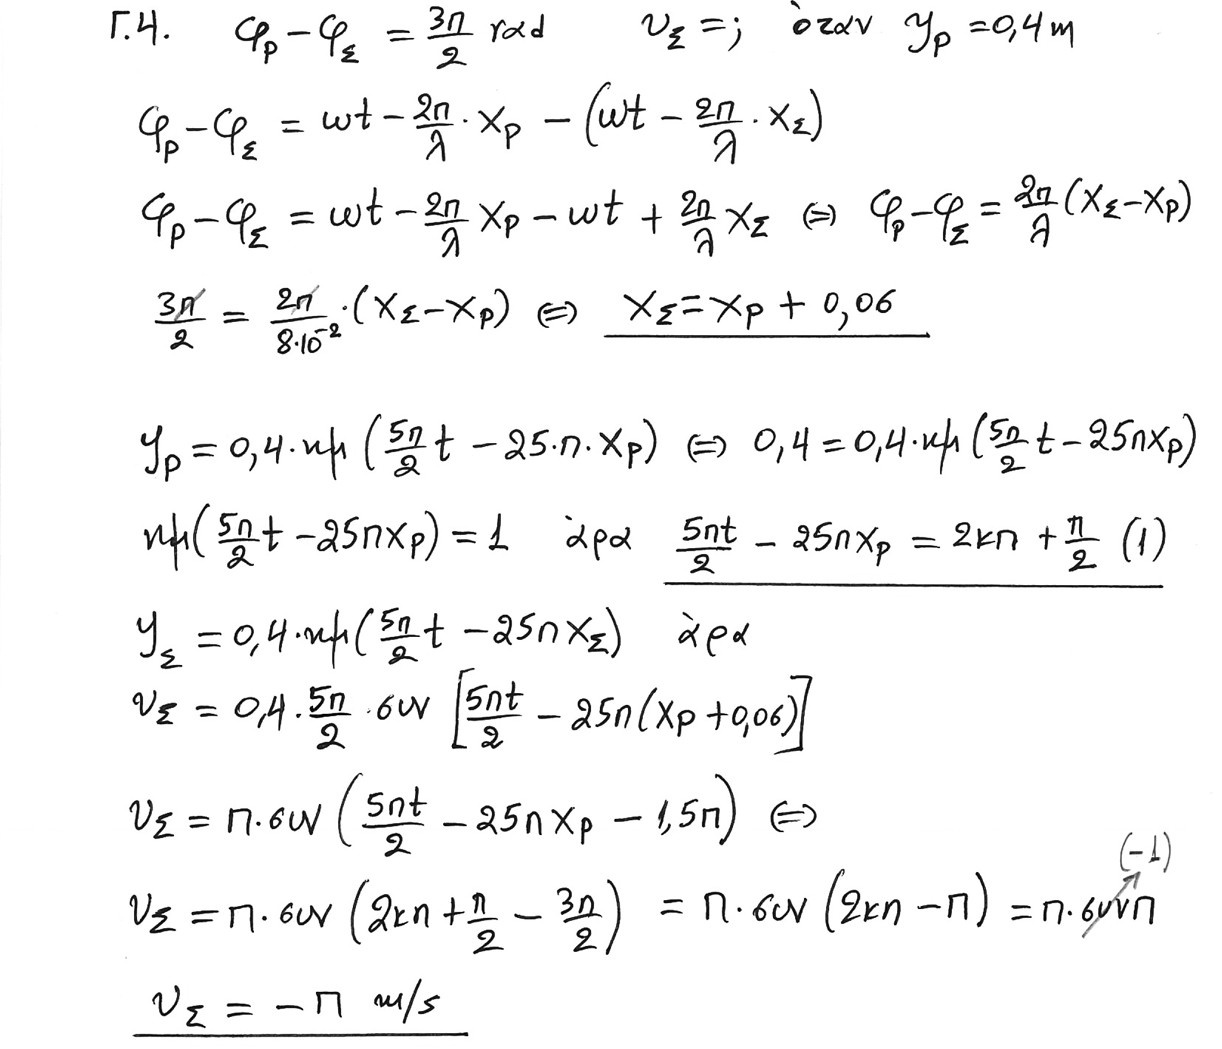 Γ.4. φ_P − φ_Σ = 3π/2 rad υ_Σ = ; όταν y_P = 0,4 m
φ_P − φ_Σ = ωt − 2π/λ · x_P − (ωt − 2π/λ · x_Σ)
φ_P − φ_Σ = ωt − 2π/λ x_P − ωt + 2π/λ x_Σ ⇔ φ_P − φ_Σ = 2π/λ (x_Σ − x_P)
3π/2 = 2π/8·10⁻² · (x_Σ − x_P) ⇔ x_Σ = x_P + 0,06
y_P = 0,4 · ημ (5π/2 t − 25·π·x_P) ⇔ 0,4 = 0,4 · ημ (5π/2 t − 25πx_P)
ημ (5π/2 t − 25πx_P) = 1 άρα 5πt/2 − 25πx_P = 2κπ + π/2 (1)
y_Σ = 0,4 · ημ (5π/2 t − 25πx_Σ) άρα
υ_Σ = 0,4 · 5π/2 · συν [5πt/2 − 25π(x_P + 0,06)]
υ_Σ = π · συν (5πt/2 − 25πx_P − 1,5π) ⇔
(−1)
υ_Σ = π · συν (2κπ + π/2 − 3π/2) = π · συν (2κπ − π) = π · συνπ
υ_Σ = −π m/s